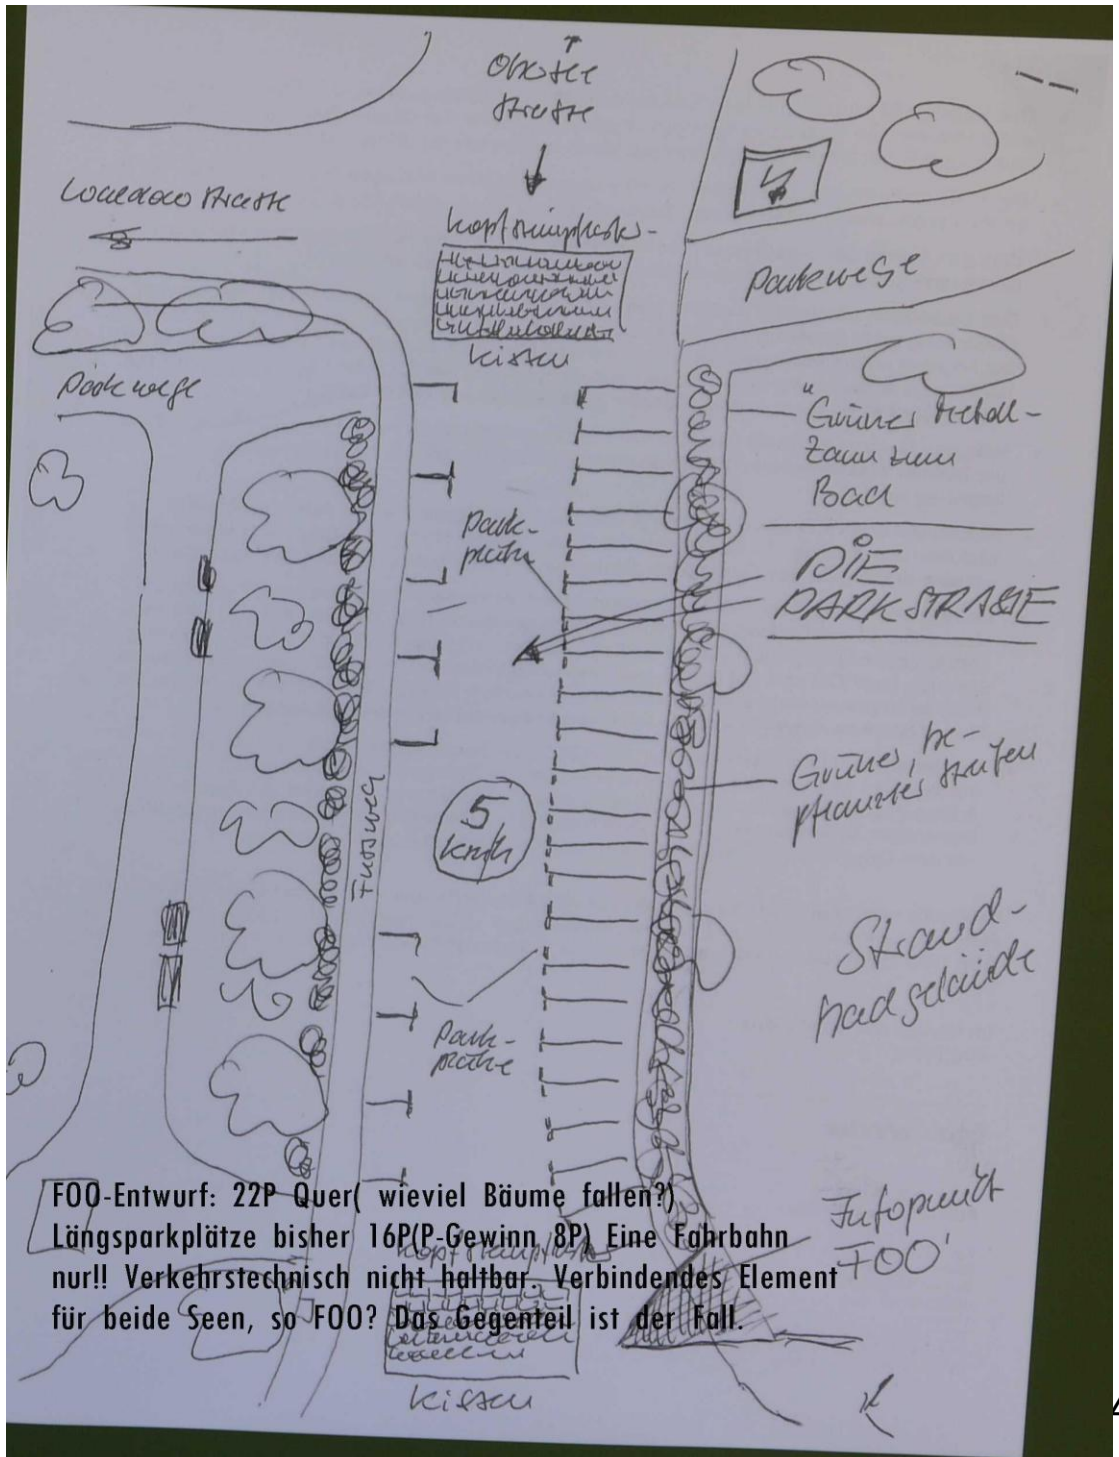 Obersee
strasse
strasse
Kopfsteinpflaster-
Kissen
Parkwege
Parkwege
"Grüner Metall-
Zaun zum
Bad
Park-
plätze
DIE
PARKSTRASSE
Grüner, be-
pflanzter Streifen
5
km/h
Fussweg
Strand-
badgebäude
Park-
plätze
Infopunkt
FOO'
FOO-Entwurf: 22P Quer( wieviel Bäume fallen?)
Längsparkplätze bisher 16P(P-Gewinn 8P) Eine Fahrbahn
nur!! Verkehrstechnisch nicht haltbar. Verbindendes Element
für beide Seen, so FOO? Das Gegenteil ist der Fall.
Kopfsteinpflaster
Kissen
4